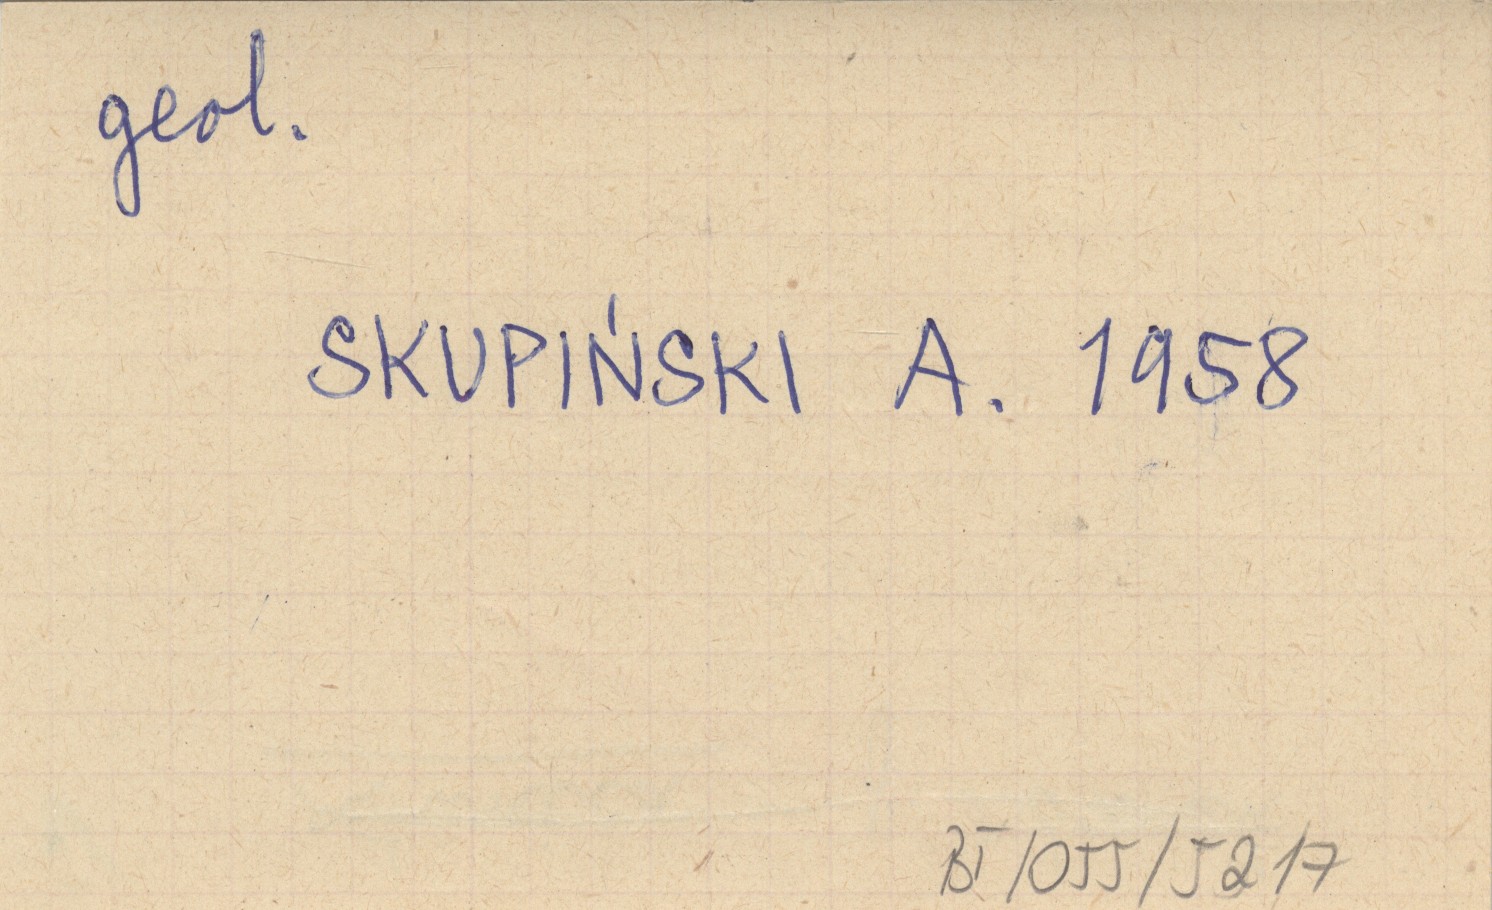 geol.
SKUPIŃSKI A. 1958
BI/055/5217